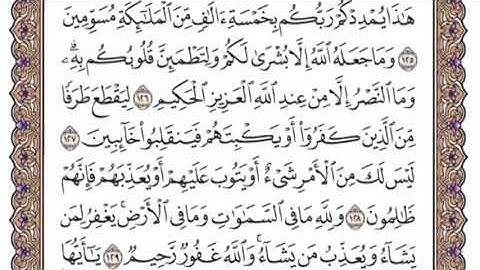 هَـٰذَا يُمْدِدْكُمْ رَبُّكُم بِخَمْسَةِ ءَالَـٰفٍ مِّنَ ٱلْمَلَـٰٓئِكَةِ مُسَوِّمِينَ
١٢٥ وَمَا جَعَلَهُ ٱللَّهُ إِلَّا بُشْرَىٰ لَكُمْ وَلِتَطْمَئِنَّ قُلُوبُكُم بِهِۦ ۗ
وَمَا ٱلنَّصْرُ إِلَّا مِنْ عِندِ ٱللَّهِ ٱلْعَزِيزِ ٱلْحَكِيمِ ١٢٦ لِيَقْطَعَ طَرَفًا
مِّنَ ٱلَّذِينَ كَفَرُوٓا۟ أَوْ يَكْبِتَهُمْ فَيَنقَلِبُوا۟ خَآئِبِينَ ١٢٧
لَيْسَ لَكَ مِنَ ٱلْأَمْرِ شَىْءٌ أَوْ يَتُوبَ عَلَيْهِمْ أَوْ يُعَذِّبَهُمْ فَإِنَّهُمْ
ظَـٰلِمُونَ ١٢٨ وَلِلَّهِ مَا فِى ٱلسَّمَـٰوَٰتِ وَمَا فِى ٱلْأَرْضِ ۚ يَغْفِرُ لِمَن
يَشَآءُ وَيُعَذِّبُ مَن يَشَآءُ ۚ وَٱللَّهُ غَفُورٌ رَّحِيمٌ ١٢٩ يَـٰٓأَيُّهَا